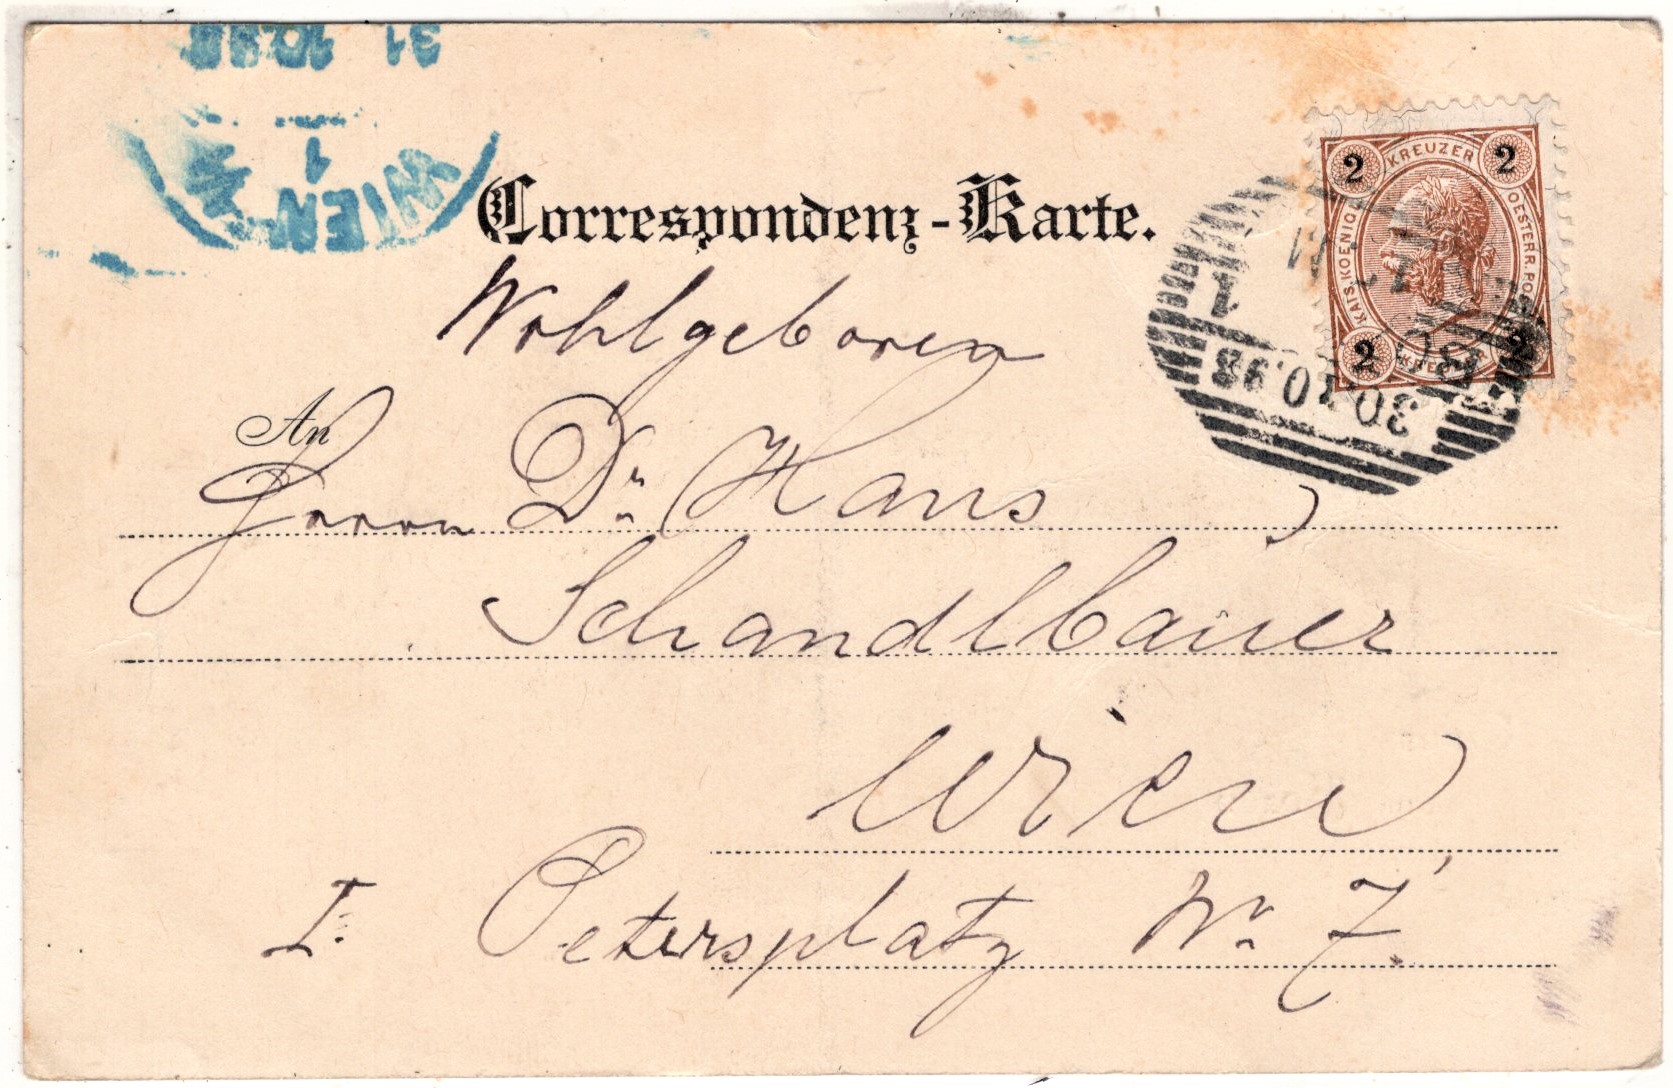 31 10 98
1
WIEN
Correspondenz-Karte.
2 KREUZER 2
KAIS. KOENIG. OESTERR. PO
2 2
1
30.10.98
Wohlgeboren
An
Herrn Dr. Hans
Schandlbauer
Wien
I. Petersplatz Nr. 7.